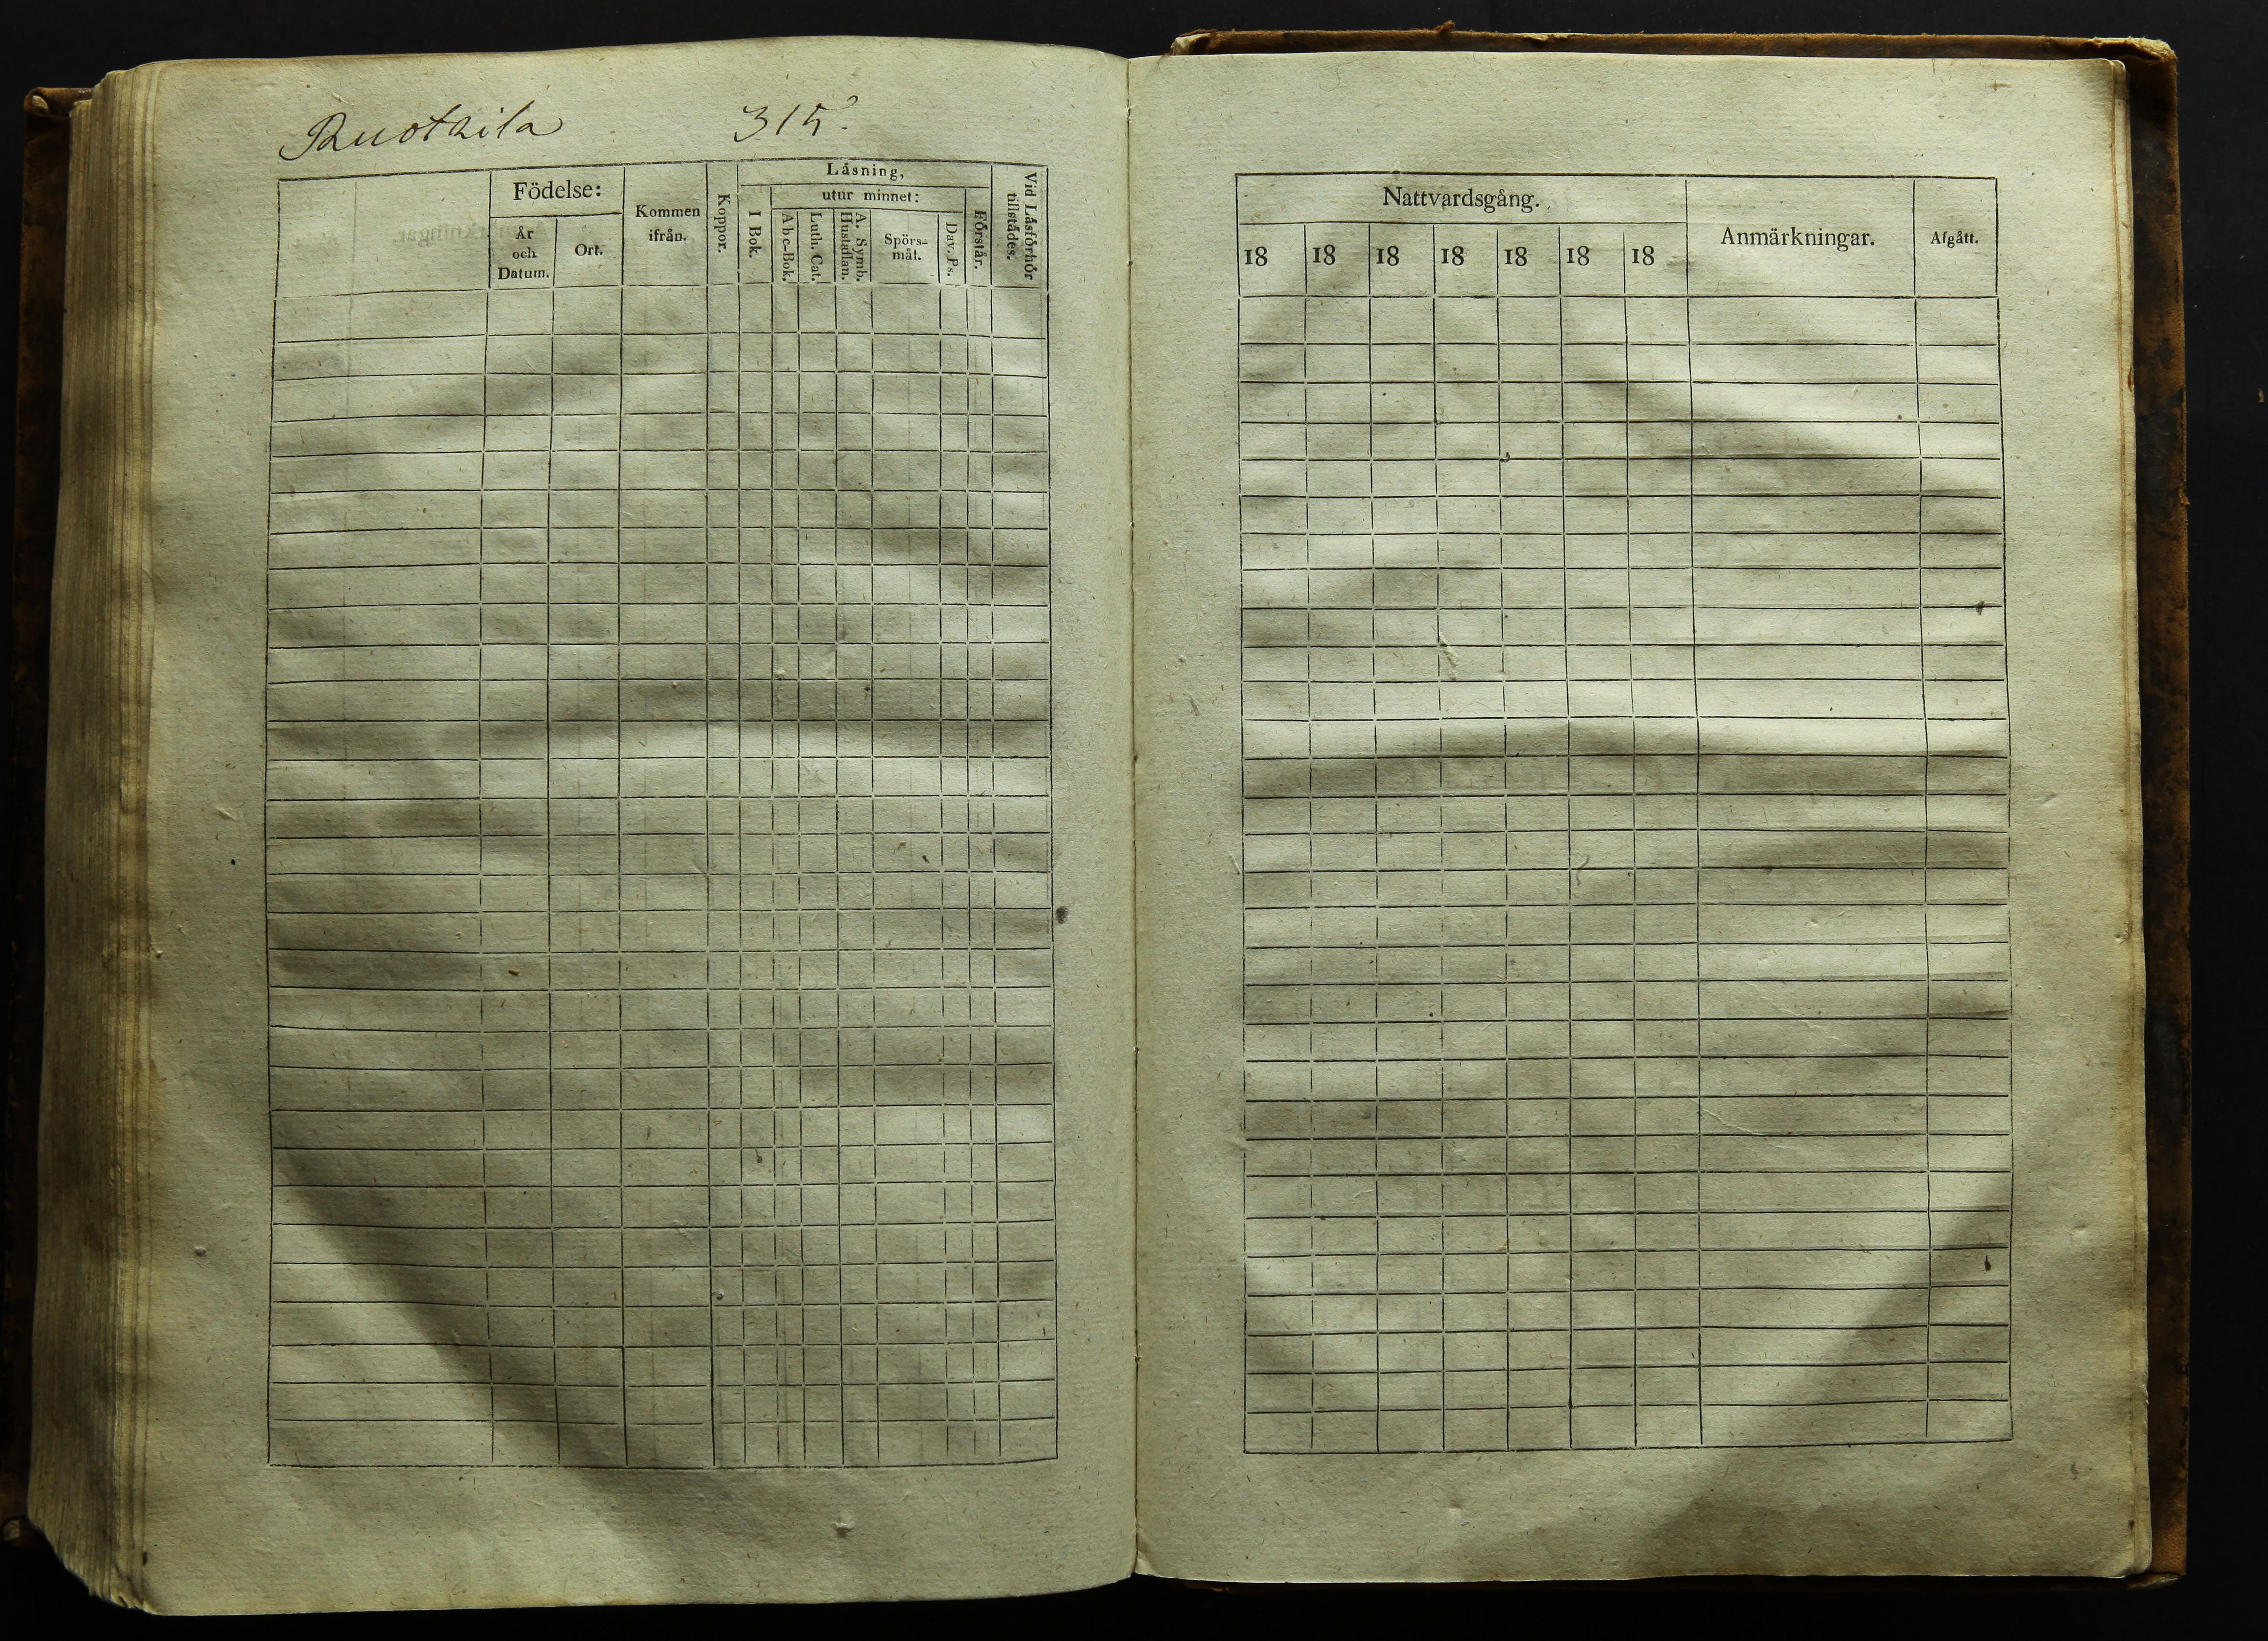 Ruotsila 315.
Födelse:
År
och
Datum.
Ort.
Kommen
ifrån.
Koppor.
Låsning,
utur minnet:
I Bok.
Abc-Bok.
Luth. Cat.
A. Symb.
Hustaflan.
Spörs-
mål.
Dav. Ps.
Förstår.
Vid Låsförhör
tillstådes.
Nattvardsgång.
18 18 18 18 18 18 18
Anmärkningar.
Afgått.